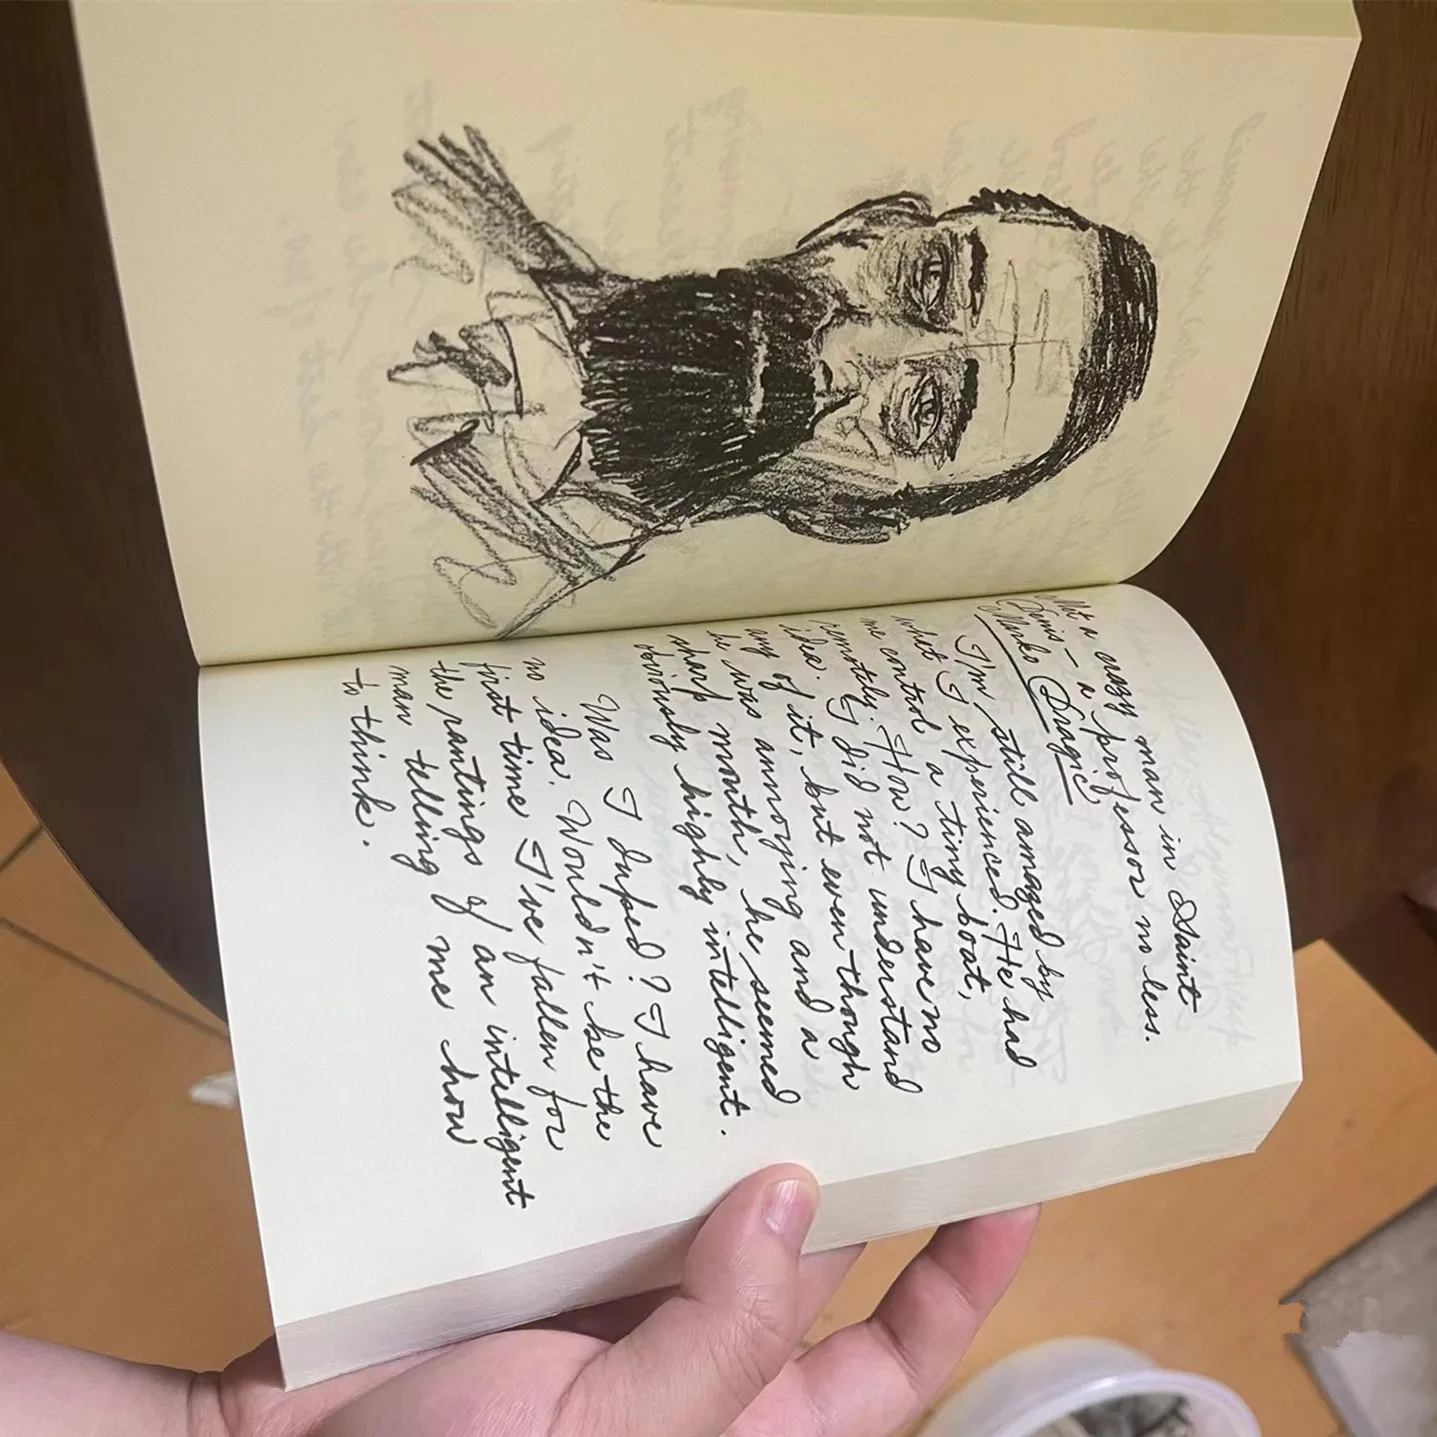 Not a crazy man in Saint
Denis - a professor no less.
Marko Dragic
I'm still amazed by
what I experienced. He had
me control a tiny boat,
remotely. How? I have no
idea. I did not understand
any of it, but even though
he was annoying and a
sharp mouth, he seemed
obviously highly intelligent.
Was I duped? I have
no idea. Wouldn't be the
first time I've fallen for
the rantings of an intelligent
man telling me how
to think.